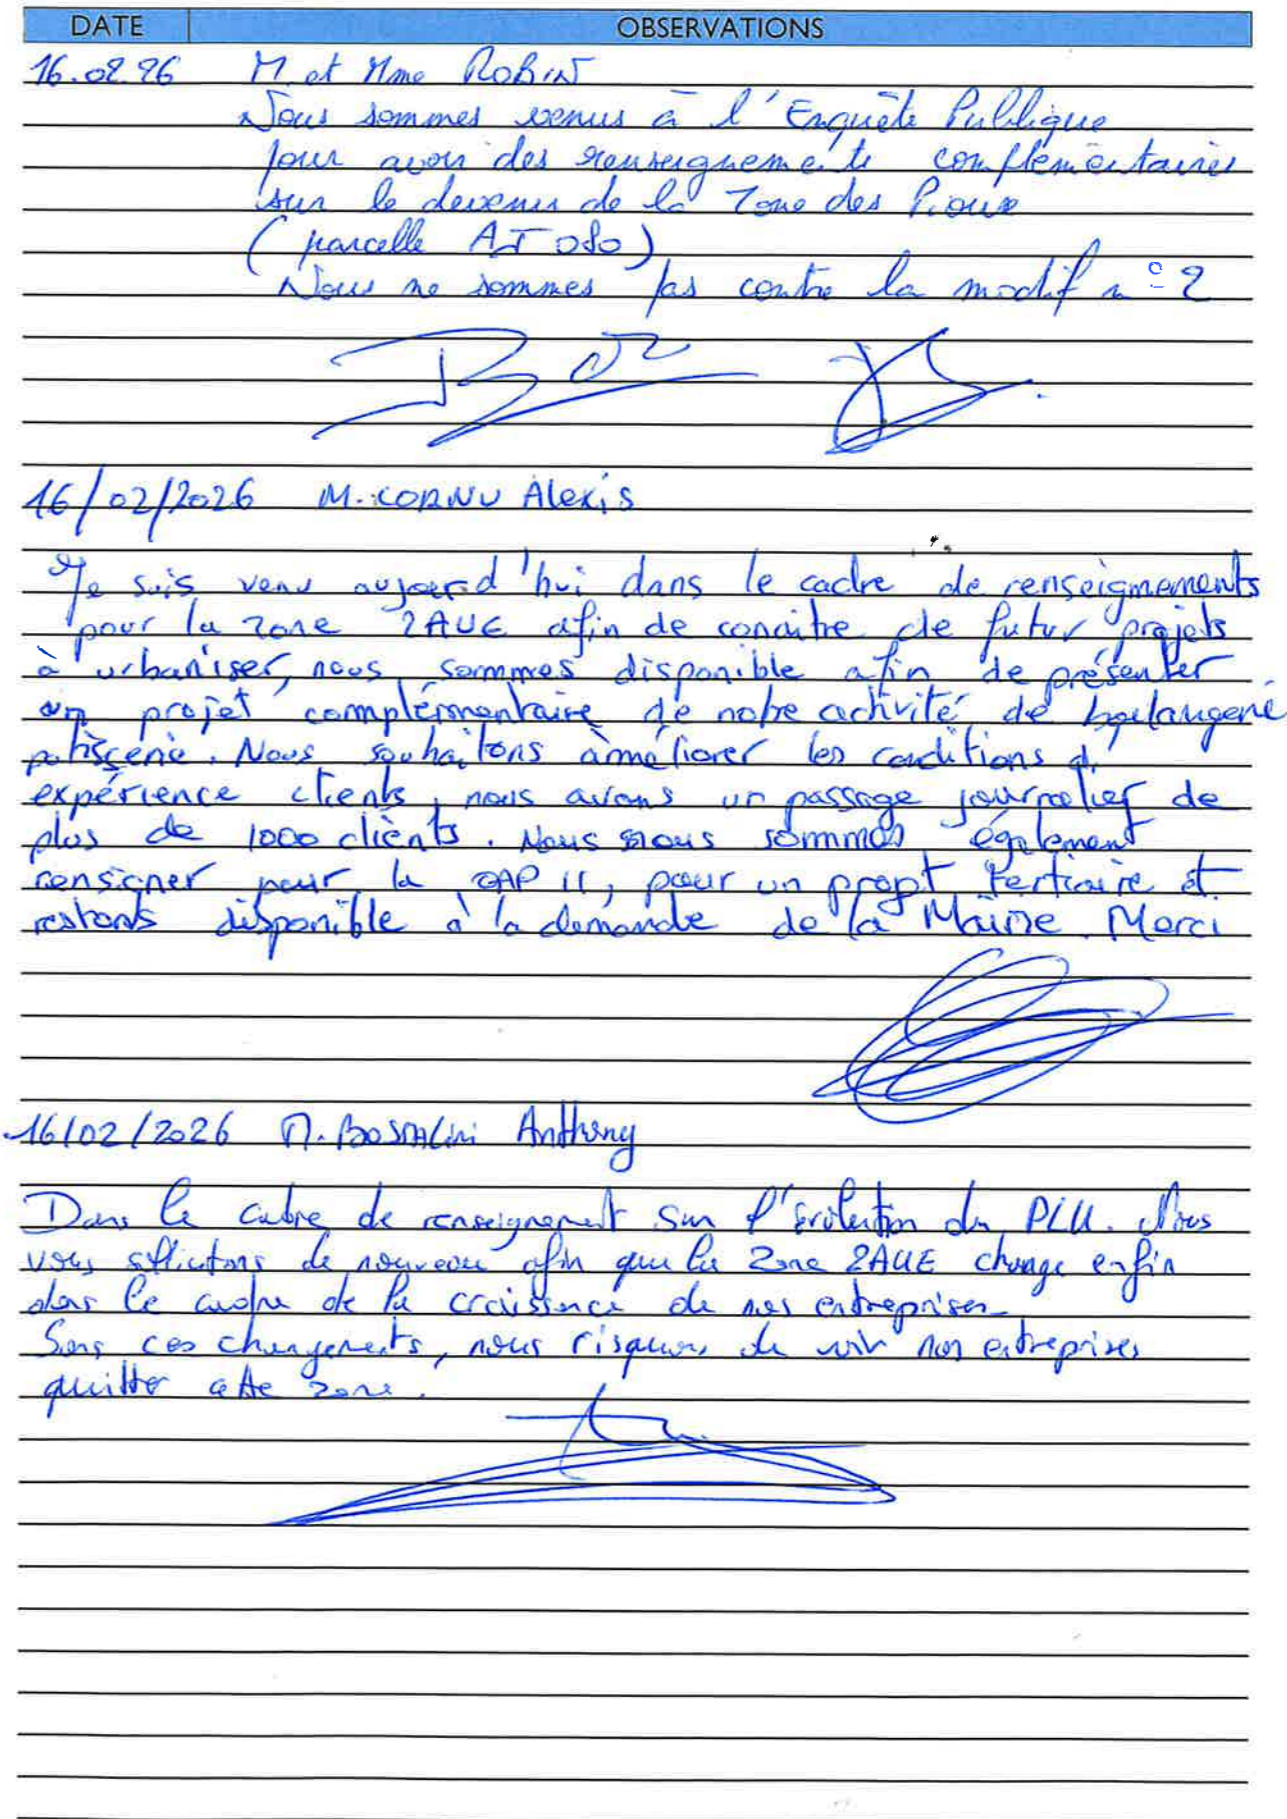 DATE OBSERVATIONS
16.02.26 M et Mme ROBIN
Nous sommes venus à l'Enquête Publique
pour avoir des renseignements complémentaires
sur le devenir de la Zone des Pioux
(parcelle AI 080)
Nous ne sommes pas contre la modif n° 2
16/02/2026 M. CORNU Alexis
Je suis venu aujourd'hui dans le cadre de renseignements
pour la zone 2AUE afin de conaitre de futur projets
à urbaniser, nous sommes disponible afin de présenter
un projet complémentaire de notre activité de boulangerie
patisserie. Nous souhaitons améliorer les conditions d'
expérience clients, nous avons un passage journalier de
plus de 1000 clients. Nous nous sommes également
rensigner pour la OAP 11, pour un projet tertiaire et
restons disponible à la demande de la Mairie. Merci
16/02/2026 M. Anthony
Dans le cadre de renseignement sur l'évolution du PLU. Nous
vous sollicitons de nouveau afin que la Zone 2AUE change enfin
dans le cadre de la croissance de nos entreprises.
Sans ces changements, nous risquons de voir nos entreprises
quitter cette zone.